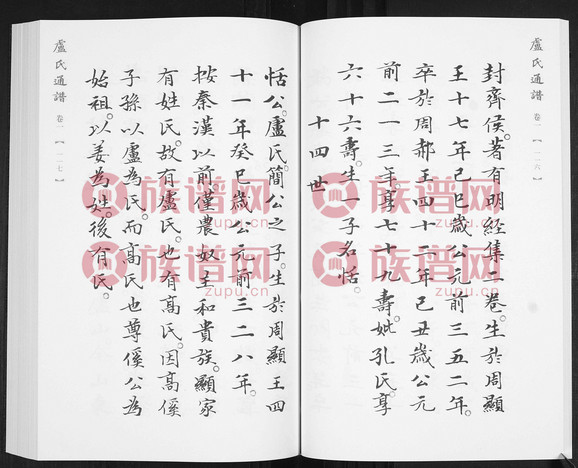 盧氏通譜 卷一 【一一六】
封齊侯。著有明經集二卷。生於周顯
王十七年己巳歲公元前三五二年。
卒於周郝王四十二年己丑歲公元
前二一三年享七十九壽。妣孔氏。享
六十六壽。生一子名恬。
十四世
恬公。盧氏。簡公之子。生於周顯王四
十一年癸巳歲公元前三二八年。
按秦漢以前僅農奴主和貴族。顯家
有姓氏。故有盧氏。也有高氏。因高傒
子孫以盧為氏。而高氏也尊傒公為
始祖。以姜為姓。後有氏。
盧氏通譜 卷一 【一一七】
族谱网
zupu.cn
族谱网
zupu.cn
族谱网
zupu.cn
族谱网
zupu.cn